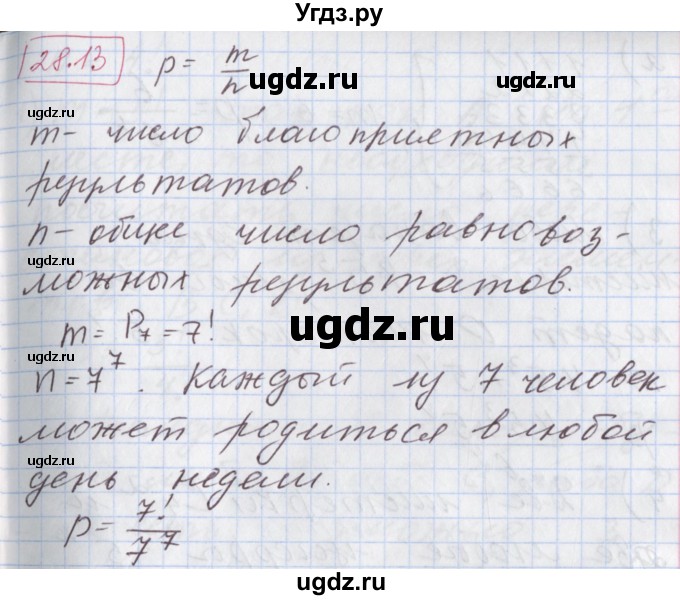 Угдз.ру
28.13 p = m/n
ugdz.ru ugdz.ru
ugdz.ru
m - число благоприятных
результатов.
n - общее число равновоз-
ugdz.ru ugdz.ru
можных результатов.
m = P₇ = 7!
ugdz.ru
n = 7⁷. Каждый из 7 человек
может родиться в любой
ugdz.ru ugdz.ru
день недели.
p = 7!/7⁷
ugdz.ru
ugdz.ru